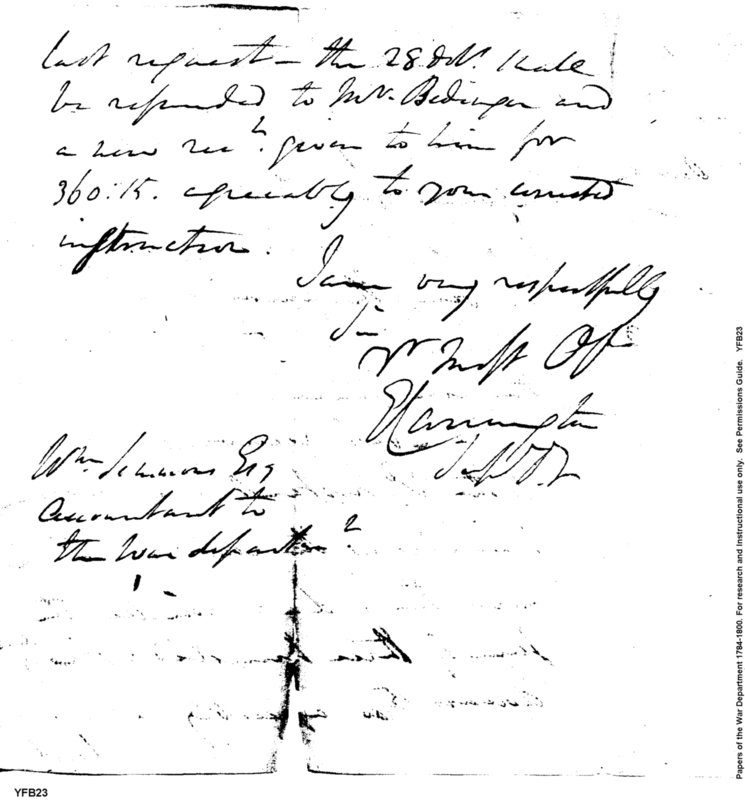 last request — the 28 doll.s shall
be refunded to Mr. Bedinger and
a new rec.t given to him for
360.15. agreeably to your corrected
instruction.
I am very respectfully
Sir
Yr Most Ob
E Carrington
Wm Simmons Esq
Accountant to
the War departm.t
Papers of the War Department 1784-1800. For research and instructional use only. See Permissions Guide. YFB23
YFB23